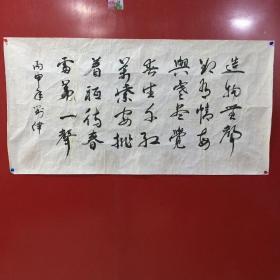 造物無聲
却有情每
與寒盡覺
春生千红
萬紫安排
着祗待春
雷第一聲
丙申年